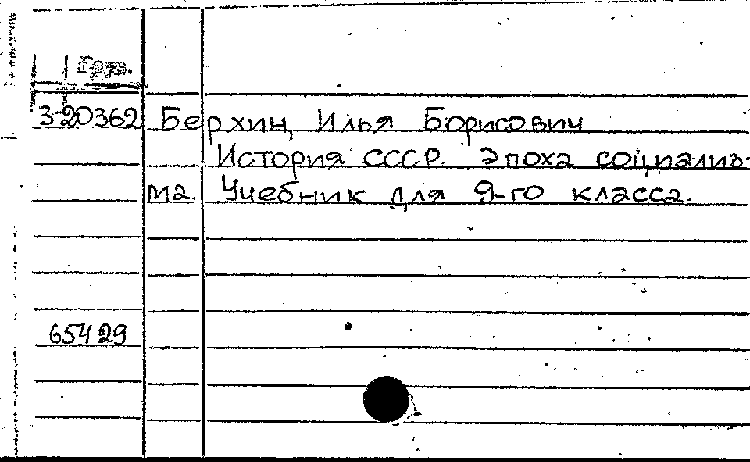 Груз.
3-20362 Берхин, Илья Борисович
История СССР. Эпоха социализ-
ма. Учебник для 9-го класса.
65429